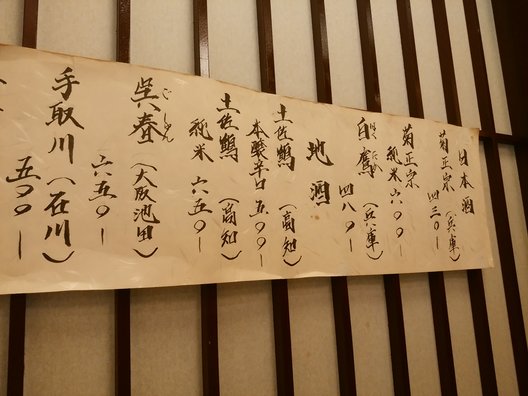 日本酒
菊正宗(兵庫)
四三〇ー
菊正宗
純米 六〇〇ー
白鷹(兵庫)
四八〇ー
地酒
土佐鶴(高知)
本醸辛口 五〇〇ー
土佐鶴(高知)
純米 六五〇ー
呉春(大阪池田)
ごしゅん
六五〇ー
手取川(石川)
五〇〇ー